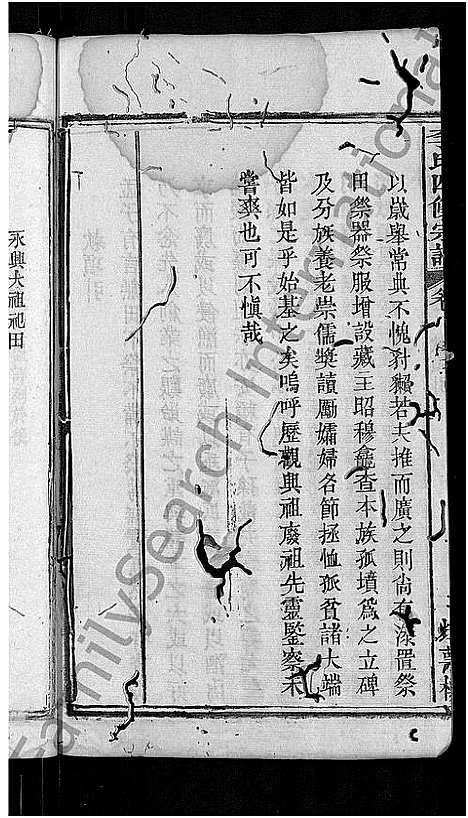 李氏四修宗譜
以歲舉常典不愧豺獺若夫推而廣之則尚有添置祭
田祭器祭服增設藏主昭穆龕查本族孤墳為之立碑
及分族養老崇儒獎讀勵孀婦名節拯恤孤貧諸大端
皆如是乎始基之矣嗚呼歷觀興祖廢祖先靈鑒察未
嘗爽也可不慎哉
永興大祖祀田
FamilySearch International